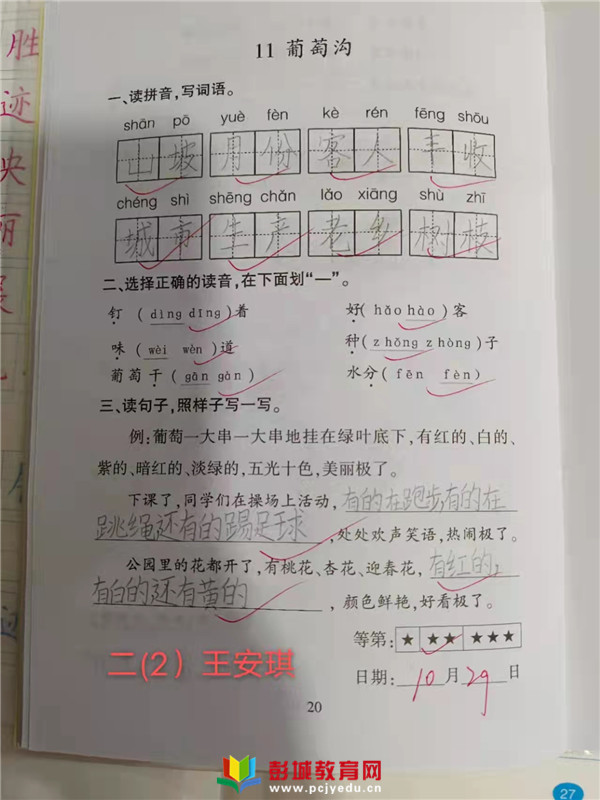 胜
迹
央
丽
11 葡萄沟
一、读拼音,写词语。
shān pō yuè fèn kè rén fēng shōu
山坡 月份 客人 丰收
chéng shì shēng chǎn lǎo xiāng shù zhī
城市 生产 老乡 树枝
二、选择正确的读音,在下面划“—”。
钉(dìng dīng)着 好(hǎo hào)客
味(wèi wèn)道 种(zhǒng zhòng)子
葡萄干(gān gàn) 水分(fēn fèn)
三、读句子,照样子写一写。
例:葡萄一大串一大串地挂在绿叶底下,有红的、白的、
紫的、暗红的、淡绿的,五光十色,美丽极了。
下课了,同学们在操场上活动,有的在跑步,有的在
跳绳还有的踢足球,处处欢声笑语,热闹极了。
公园里的花都开了,有桃花、杏花、迎春花,有红的,
有白的还有黄的,颜色鲜艳,好看极了。
等第:★ ★★ ★★★
二(2)王安琪
日期:10月29日
20
彭城教育网
www.pcjyedu.cn
27